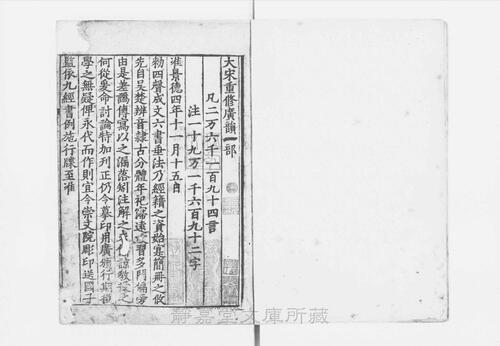 大宋重修廣韻一部
凡二万六千一百九十四言
注一十九万一千六百九十二字
准景德四年十一月十五日
勑四聲成文六書垂法乃經籍之資始寔簡冊之攸
先自吳楚辨音隸古分體年祀寖遠攻習多門偏旁
由是差譌傳寫以之漏落矧注解之未備諒教授之
何從爰命討論特加刋正仍令摹印用廣頒行期後
學之無疑俾永代而作則宜令崇文院雕印送國子
監依九經書例施行牒至准
靜嘉堂文庫所藏